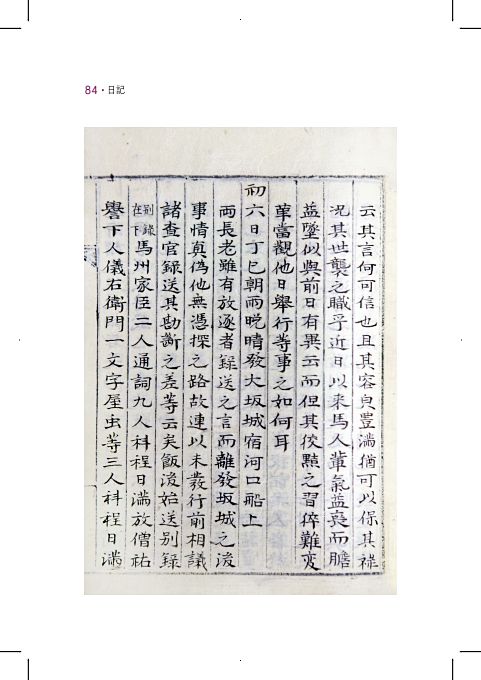 84 • 日記
云其言何可信也且其容皃豊滿猶可以保其祿
况其世襲之職乎近日以来馬人輩氣益喪而膽
益墜似與前日有異云而但其狡黠之習倅難变
革當觀他日舉行等事之如何耳
初六日丁巳朝雨晩晴發大坂城宿河口船上
両長老雖有放逐者錄送之言而離發坂城之後
事情真偽他無憑探之路故連以未發行前相議
諸查官録送其勘斷之差等云矣飯後始送別録
別錄在下馬州家臣二人通詞九人科程日滿放僧祐
譽下人儀右衛門一文字屋虫等三人科程日滿